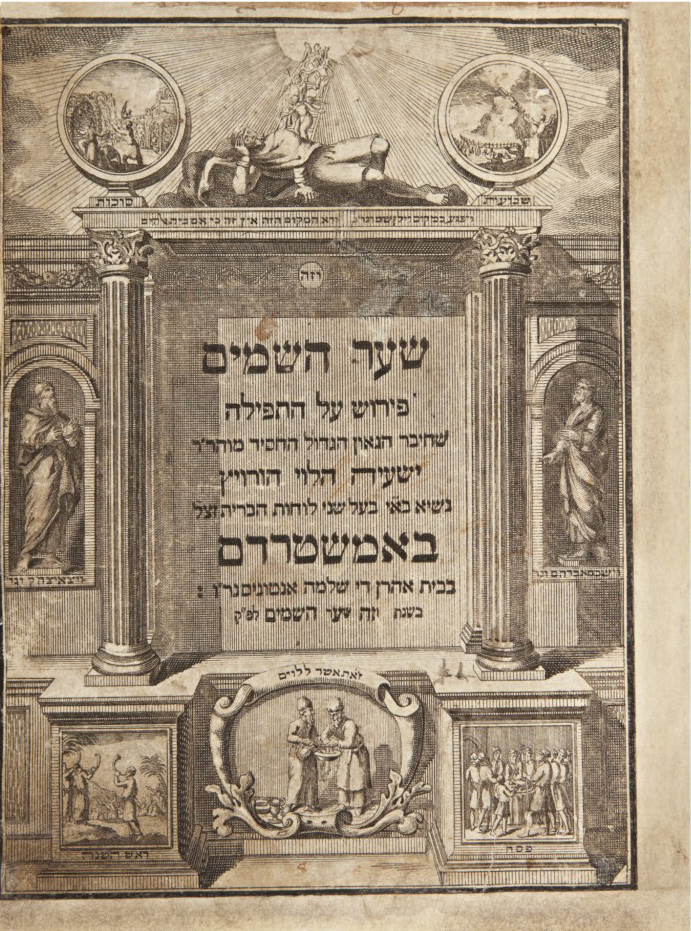 סוכות
שבועות
ויפגע במקום וילן שם וגו'
ורא המקום הזה אין זה כי אם בית אלהים
וזה
שער השמים
פירוש על התפילה
שחיבר הגאון הגדול החסיד מוהר"ר
ישעיה הלוי הורוויץ
נשיא בא"י בעל שני לוחות הברית זצ"ל
באמשטרדם
בבית אהרן די שלמה אנטונים נר"ו :
בשנת וזה שער השמים לפ"ק
וישכם אברהם וגו'
ויצא יצחק וגו'
זאת אשר ללוים
ראש השנה
פסח